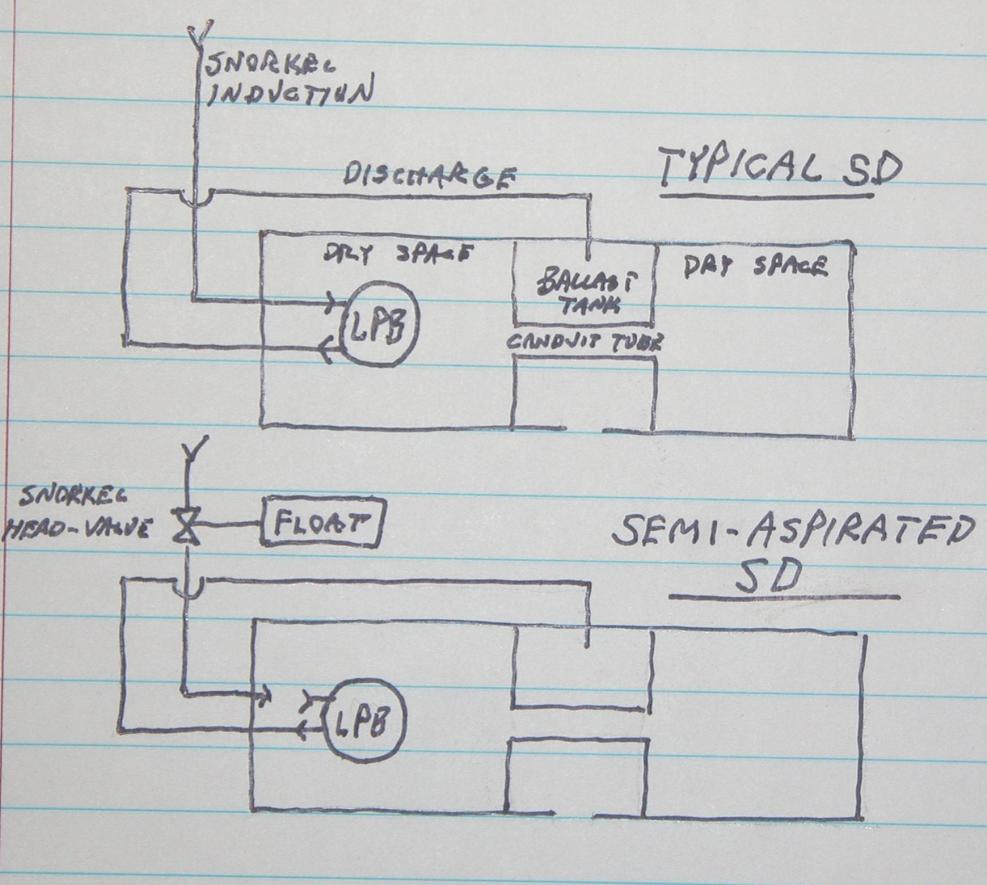 SNORKEL
INDUCTION
TYPICAL SD
DISCHARGE
DRY SPACE
BALLAST
TANK
DRY SPACE
LPB
CONDUIT TUBE
SNORKEL
HEAD-VALVE
FLOAT
SEMI-ASPIRATED
SD
LPB